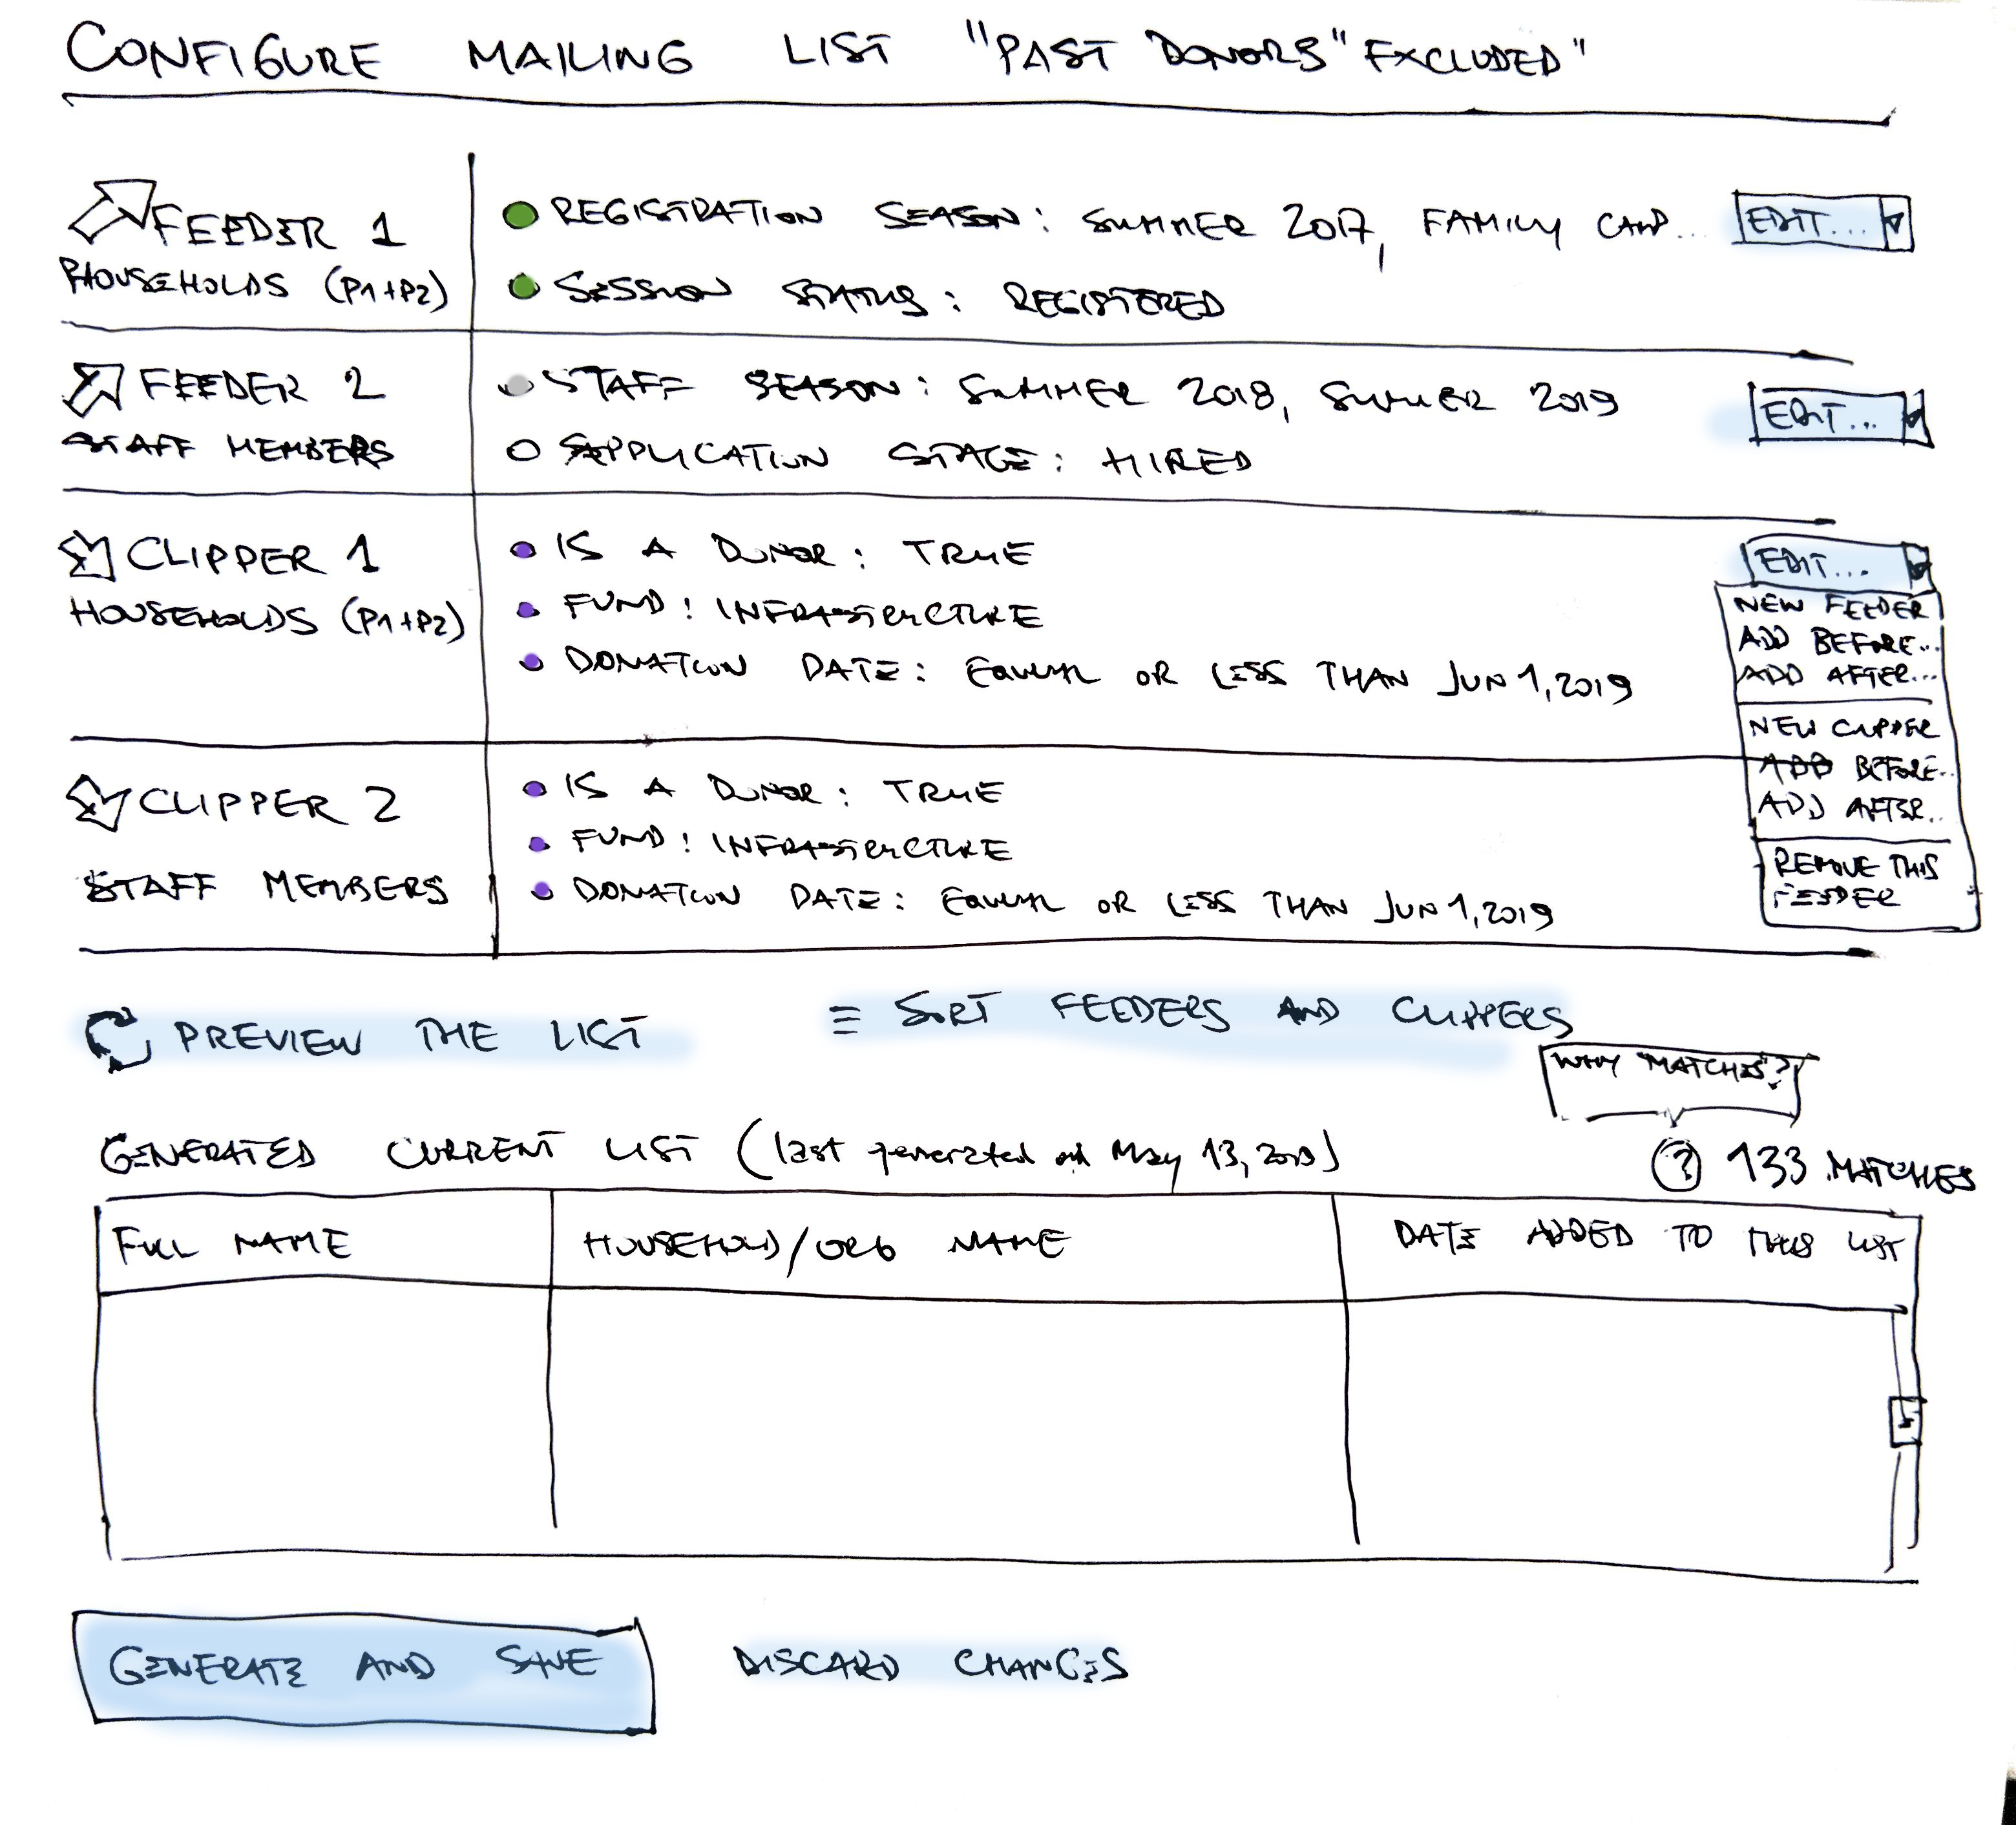 CONFIGURE MAILING LIST "PAST DONORS" EXCLUDED"
FEEDER 1
HOUSEHOLDS (P1+P2)
REGISTRATION SEASON: SUMMER 2017, FAMILY CAMP...
EDIT...
SESSION STATUS: REGISTERED
FEEDER 2
STAFF MEMBERS
STAFF SEASON: SUMMER 2018, SUMMER 2019
EDIT...
APPLICATION STAGE: HIRED
CLIPPER 1
HOUSEHOLDS (P1+P2)
IS A DONOR: TRUE
FUND: INFRASTRUCTURE
DONATION DATE: EQUAL OR LESS THAN JUN 1, 2019
EDIT...
NEW FEEDER
ADD BEFORE...
ADD AFTER...
NEW CLIPPER
ADD BEFORE..
ADD AFTER..
REMOVE THIS
FEEDER
CLIPPER 2
STAFF MEMBERS
IS A DONOR: TRUE
FUND: INFRASTRUCTURE
DONATION DATE: EQUAL OR LESS THAN JUN 1, 2019
PREVIEW THE LIST
SORT FEEDERS AND CLIPPERS
WHY "MATCHES"?
GENERATED CURRENT LIST (last generated on May 13, 2019)
? 133 MATCHES
FULL NAME
HOUSEHOLD/ORG NAME
DATE ADDED TO THIS LIST
GENERATE AND SAVE
DISCARD CHANGES